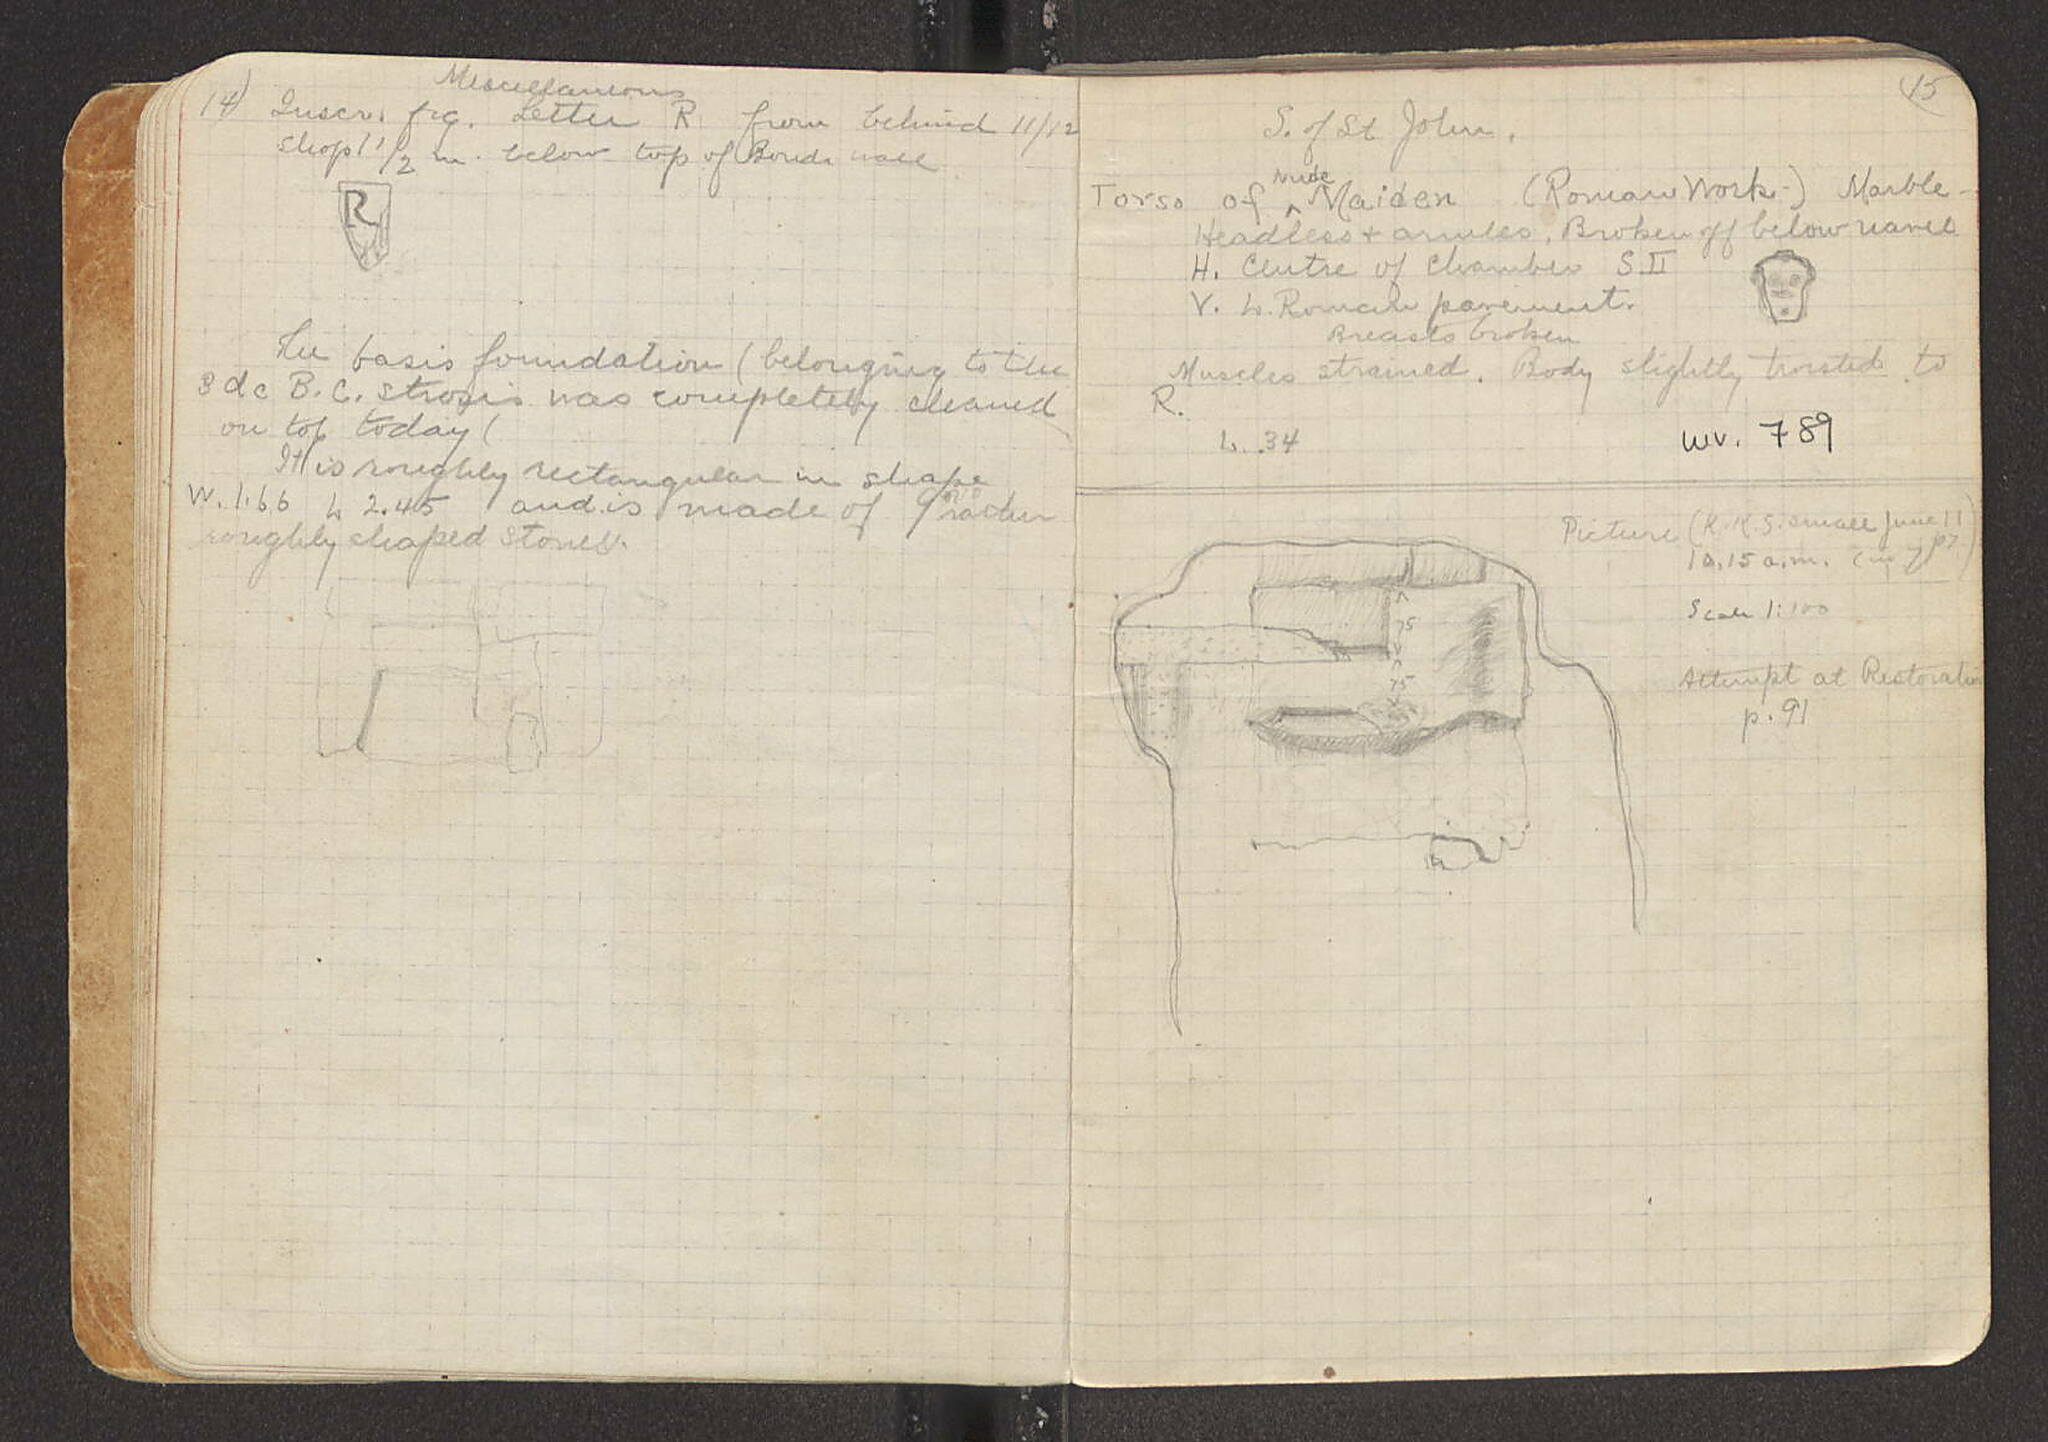 14)
Miscellaneous
Inscr. frg. Letter R from behind 11/12
shop 1 1/2 m. below top of Boud. wall
R
The basis foundation (belonging to the
3d c B.C. strosis was completely cleaned
on top today (
It is roughly rectangular in shape
W. 1.66 L 2.45 and is made of rather
roughly shaped stones.
15
S. of St John.
Torso of ^ Nude Maiden (Roman Work-) Marble-
Headless + armless. Broken off below navel
H. Centre of chamber S.II
V. L. Roman pavement.
Breasts broken
Muscles strained. Body slightly twisted to
R.
L. .34
inv. 789
Picture (K.K.S. small June 11
10.15 a.m.
Scale 1:100
75
75
Attempt at Restoration
p. 91